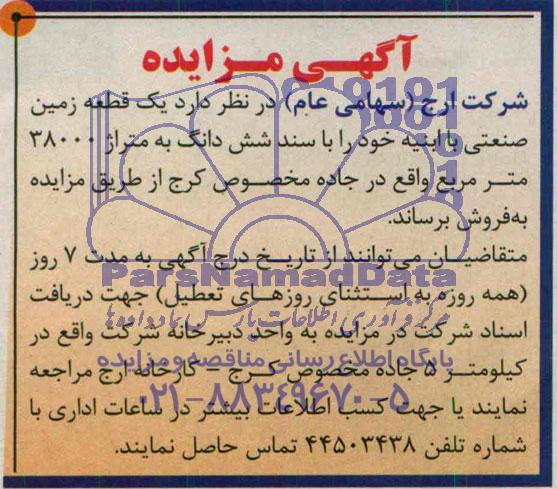 آگهی مزایده
شرکت ارج (سهامی عام) در نظر دارد یک قطعه زمین
صنعتی با ابنیه خود را با سند شش دانگ به متراژ ۳۸۰۰۰
متر مربع واقع در جاده مخصوص کرج از طریق مزایده
به‌فروش برساند.
متقاضیان می‌توانند از تاریخ درج آگهی به مدت ۷ روز
ParsNamadData
(همه روزه به استثنای روزهای تعطیل) جهت دریافت
مرکز فرآوری اطلاعات پارس نماد داده‌ها
اسناد شرکت در مزایده به واحد دبیرخانه شرکت واقع در
پایگاه اطلاع رسانی مناقصه و مزایده
کیلومتر ۵ جاده مخصوص کرج – کارخانه ارج مراجعه
۰۲۱-۸۸۳۴۹۶۷۰-۵
نمایند یا جهت کسب اطلاعات بیشتر در ساعات اداری با
شماره تلفن ۴۴۵۰۳۴۳۸ تماس حاصل نمایند.